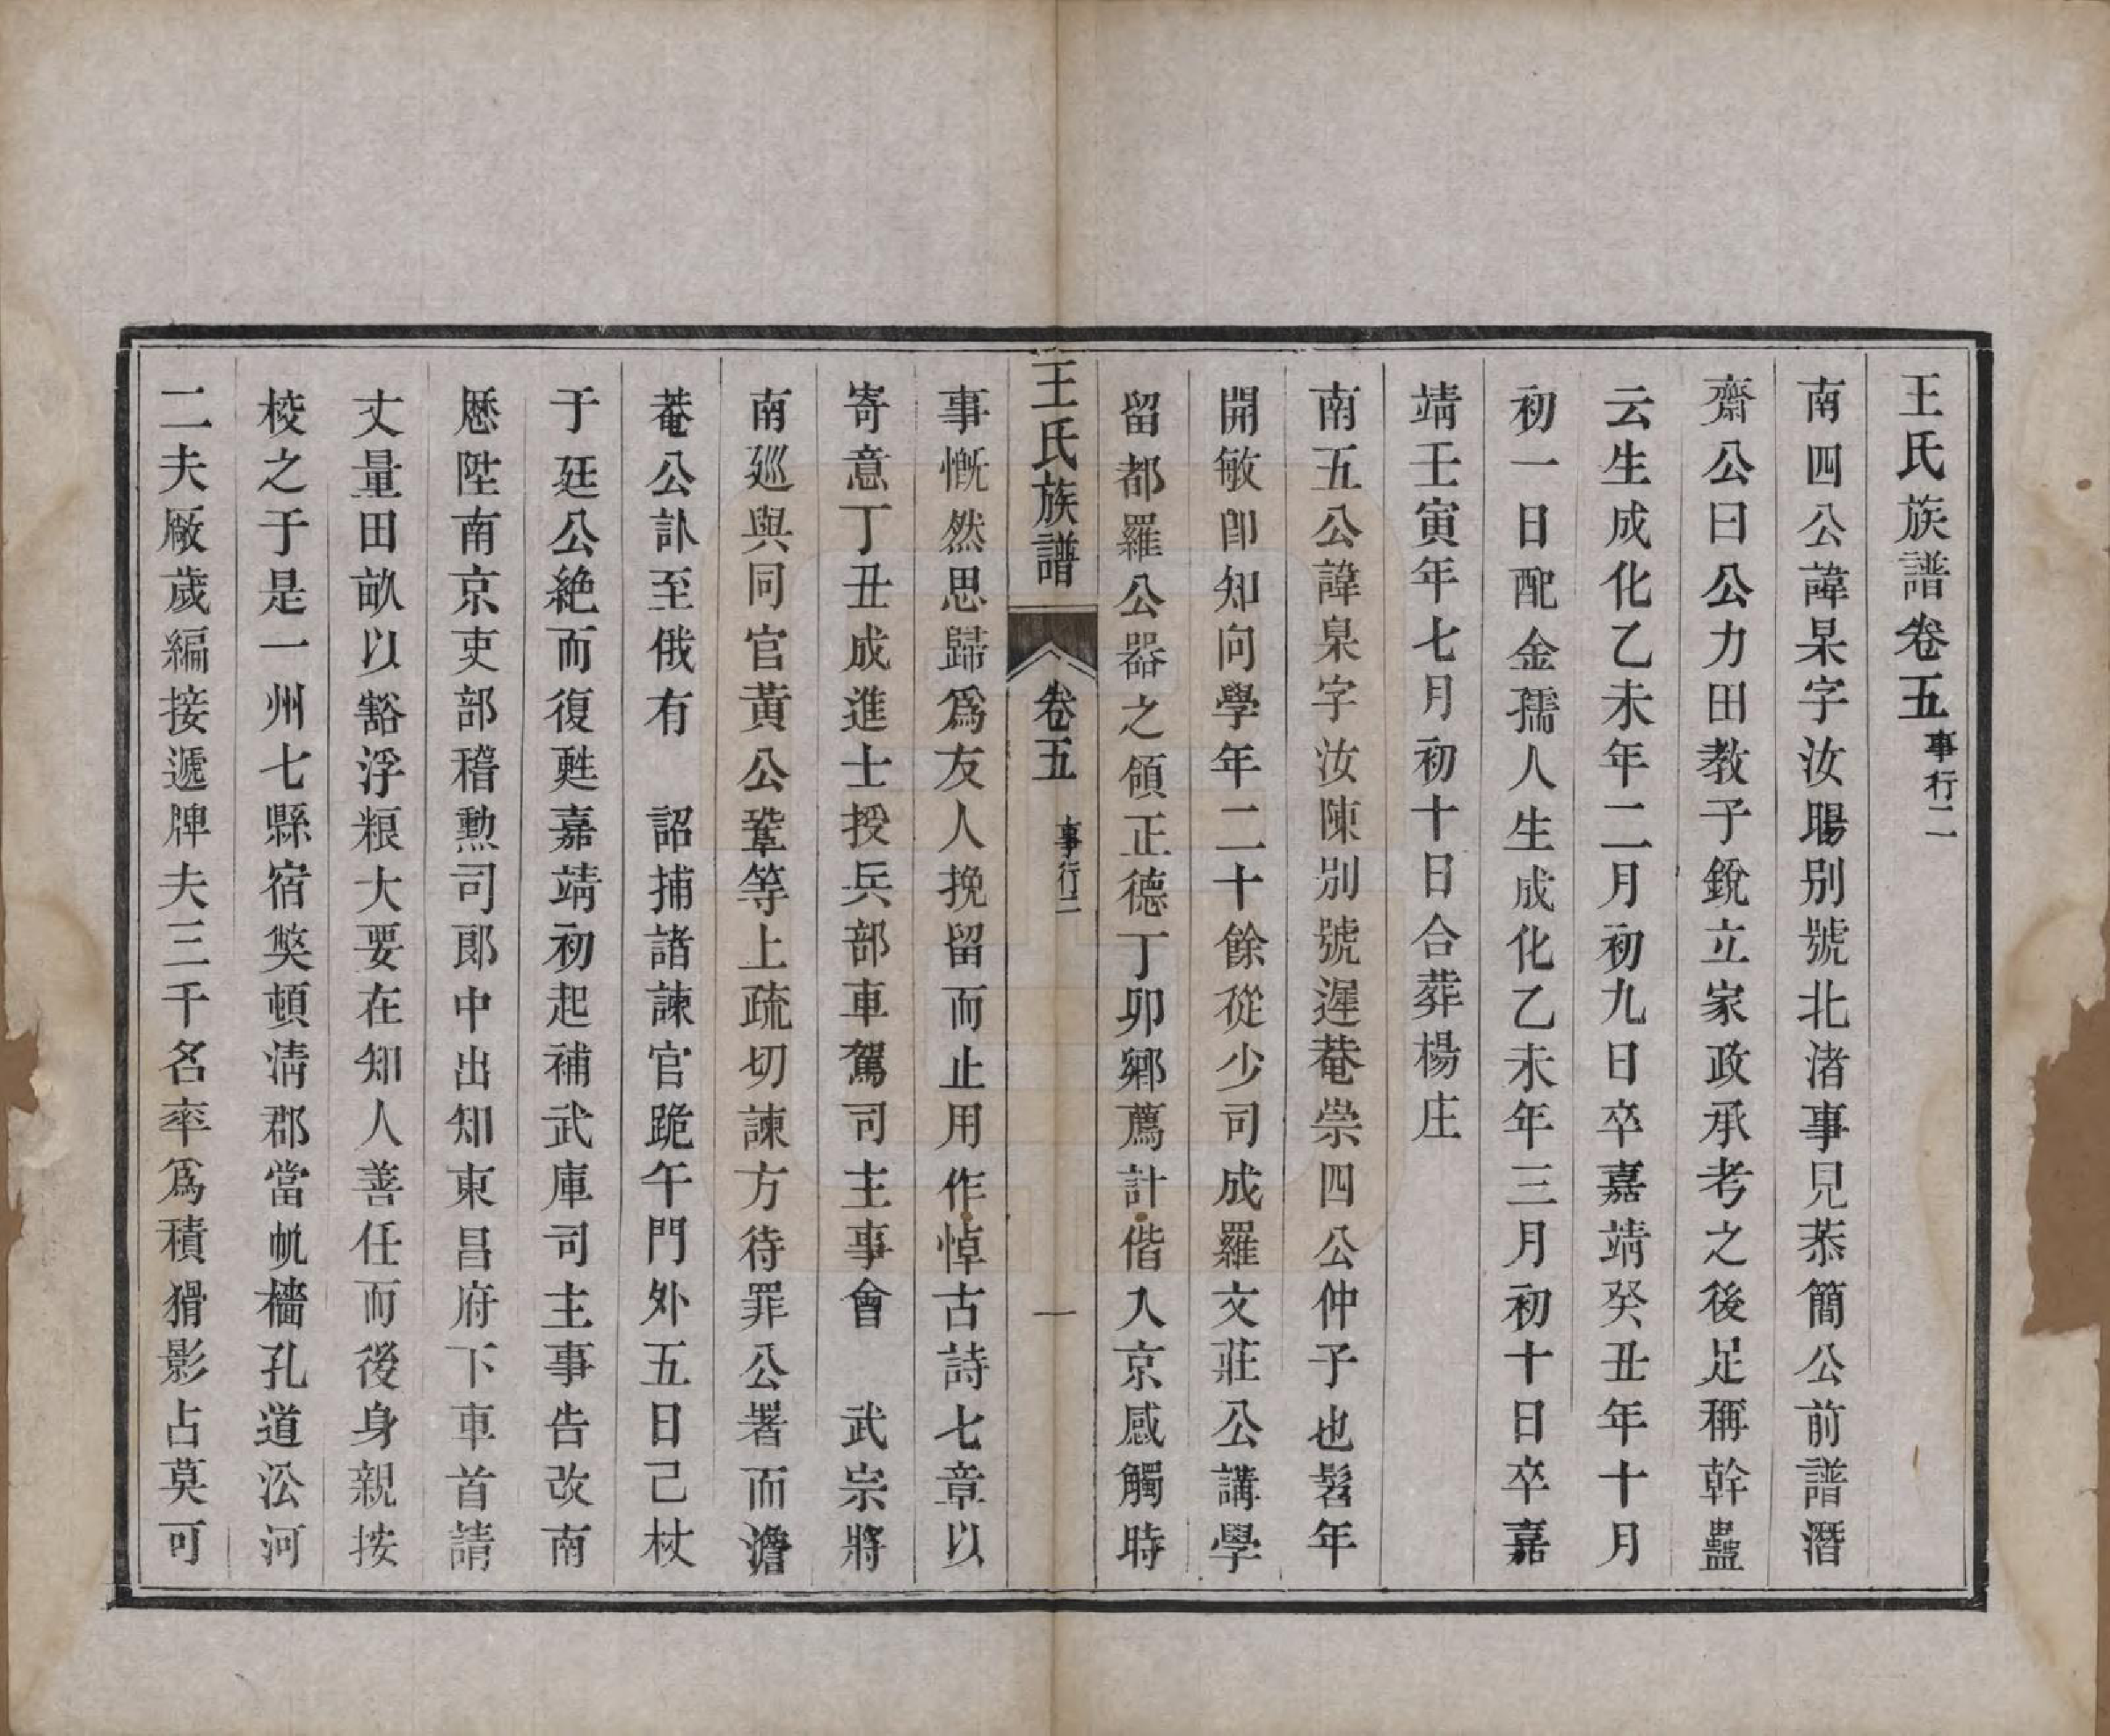 王氏族譜卷五事行二
南四公諱杲字汝暘別號北渚事見恭簡公前譜潛
齋公曰公力田教子銳立家政承考之後足稱幹蠱
云生成化乙未年二月初九日卒嘉靖癸丑年十月
初一日配金孺人生成化乙未年三月初十日卒嘉
靖壬寅年七月初十日合葬楊庄
南五公諱臬字汝陳別號遲菴崇四公仲子也髫年
開敏卽知向學年二十餘從少司成羅文莊公講學
留都羅公器之領正德丁卯鄉薦計偕入京感觸時
王氏族譜 卷五 事行二 一
事慨然思歸爲友人挽留而止用作悼古詩七章以
寄意丁丑成進士授兵部車駕司主事會 武宗將
南廵與同官黃公鞏等上疏切諫方待罪公署而澹
菴公訃至俄有 詔捕諸諫官跪午門外五日己杖
于廷公絶而復甦嘉靖初起補武庫司主事告改南
歷陞南京吏部稽勲司郎中出知東昌府下車首請
丈量田畝以豁浮粮大要在知人善任而後身親按
校之于是一州七縣宿獘頓清郡當帆檣孔道㳂河
二夫厰歲編接遞牌夫三千名率爲積猾影占莫可